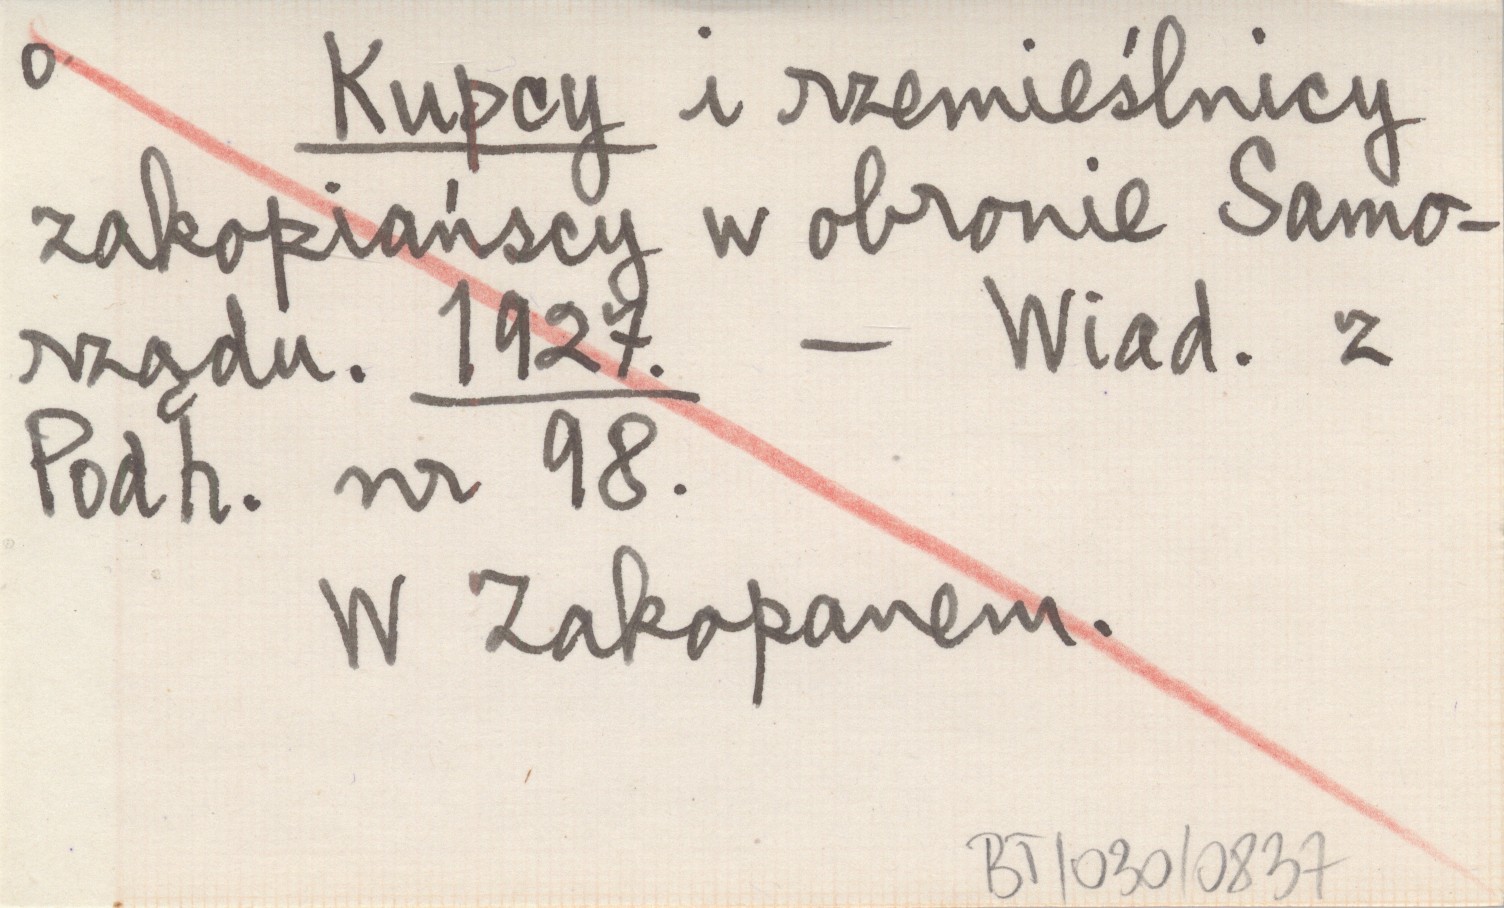 o.
Kupcy i rzemieślnicy
zakopiańscy w obronie Samo-
rządu. 1927. — Wiad. z
Podh. nr 98.
W Zakopanem.
BT/030/0837